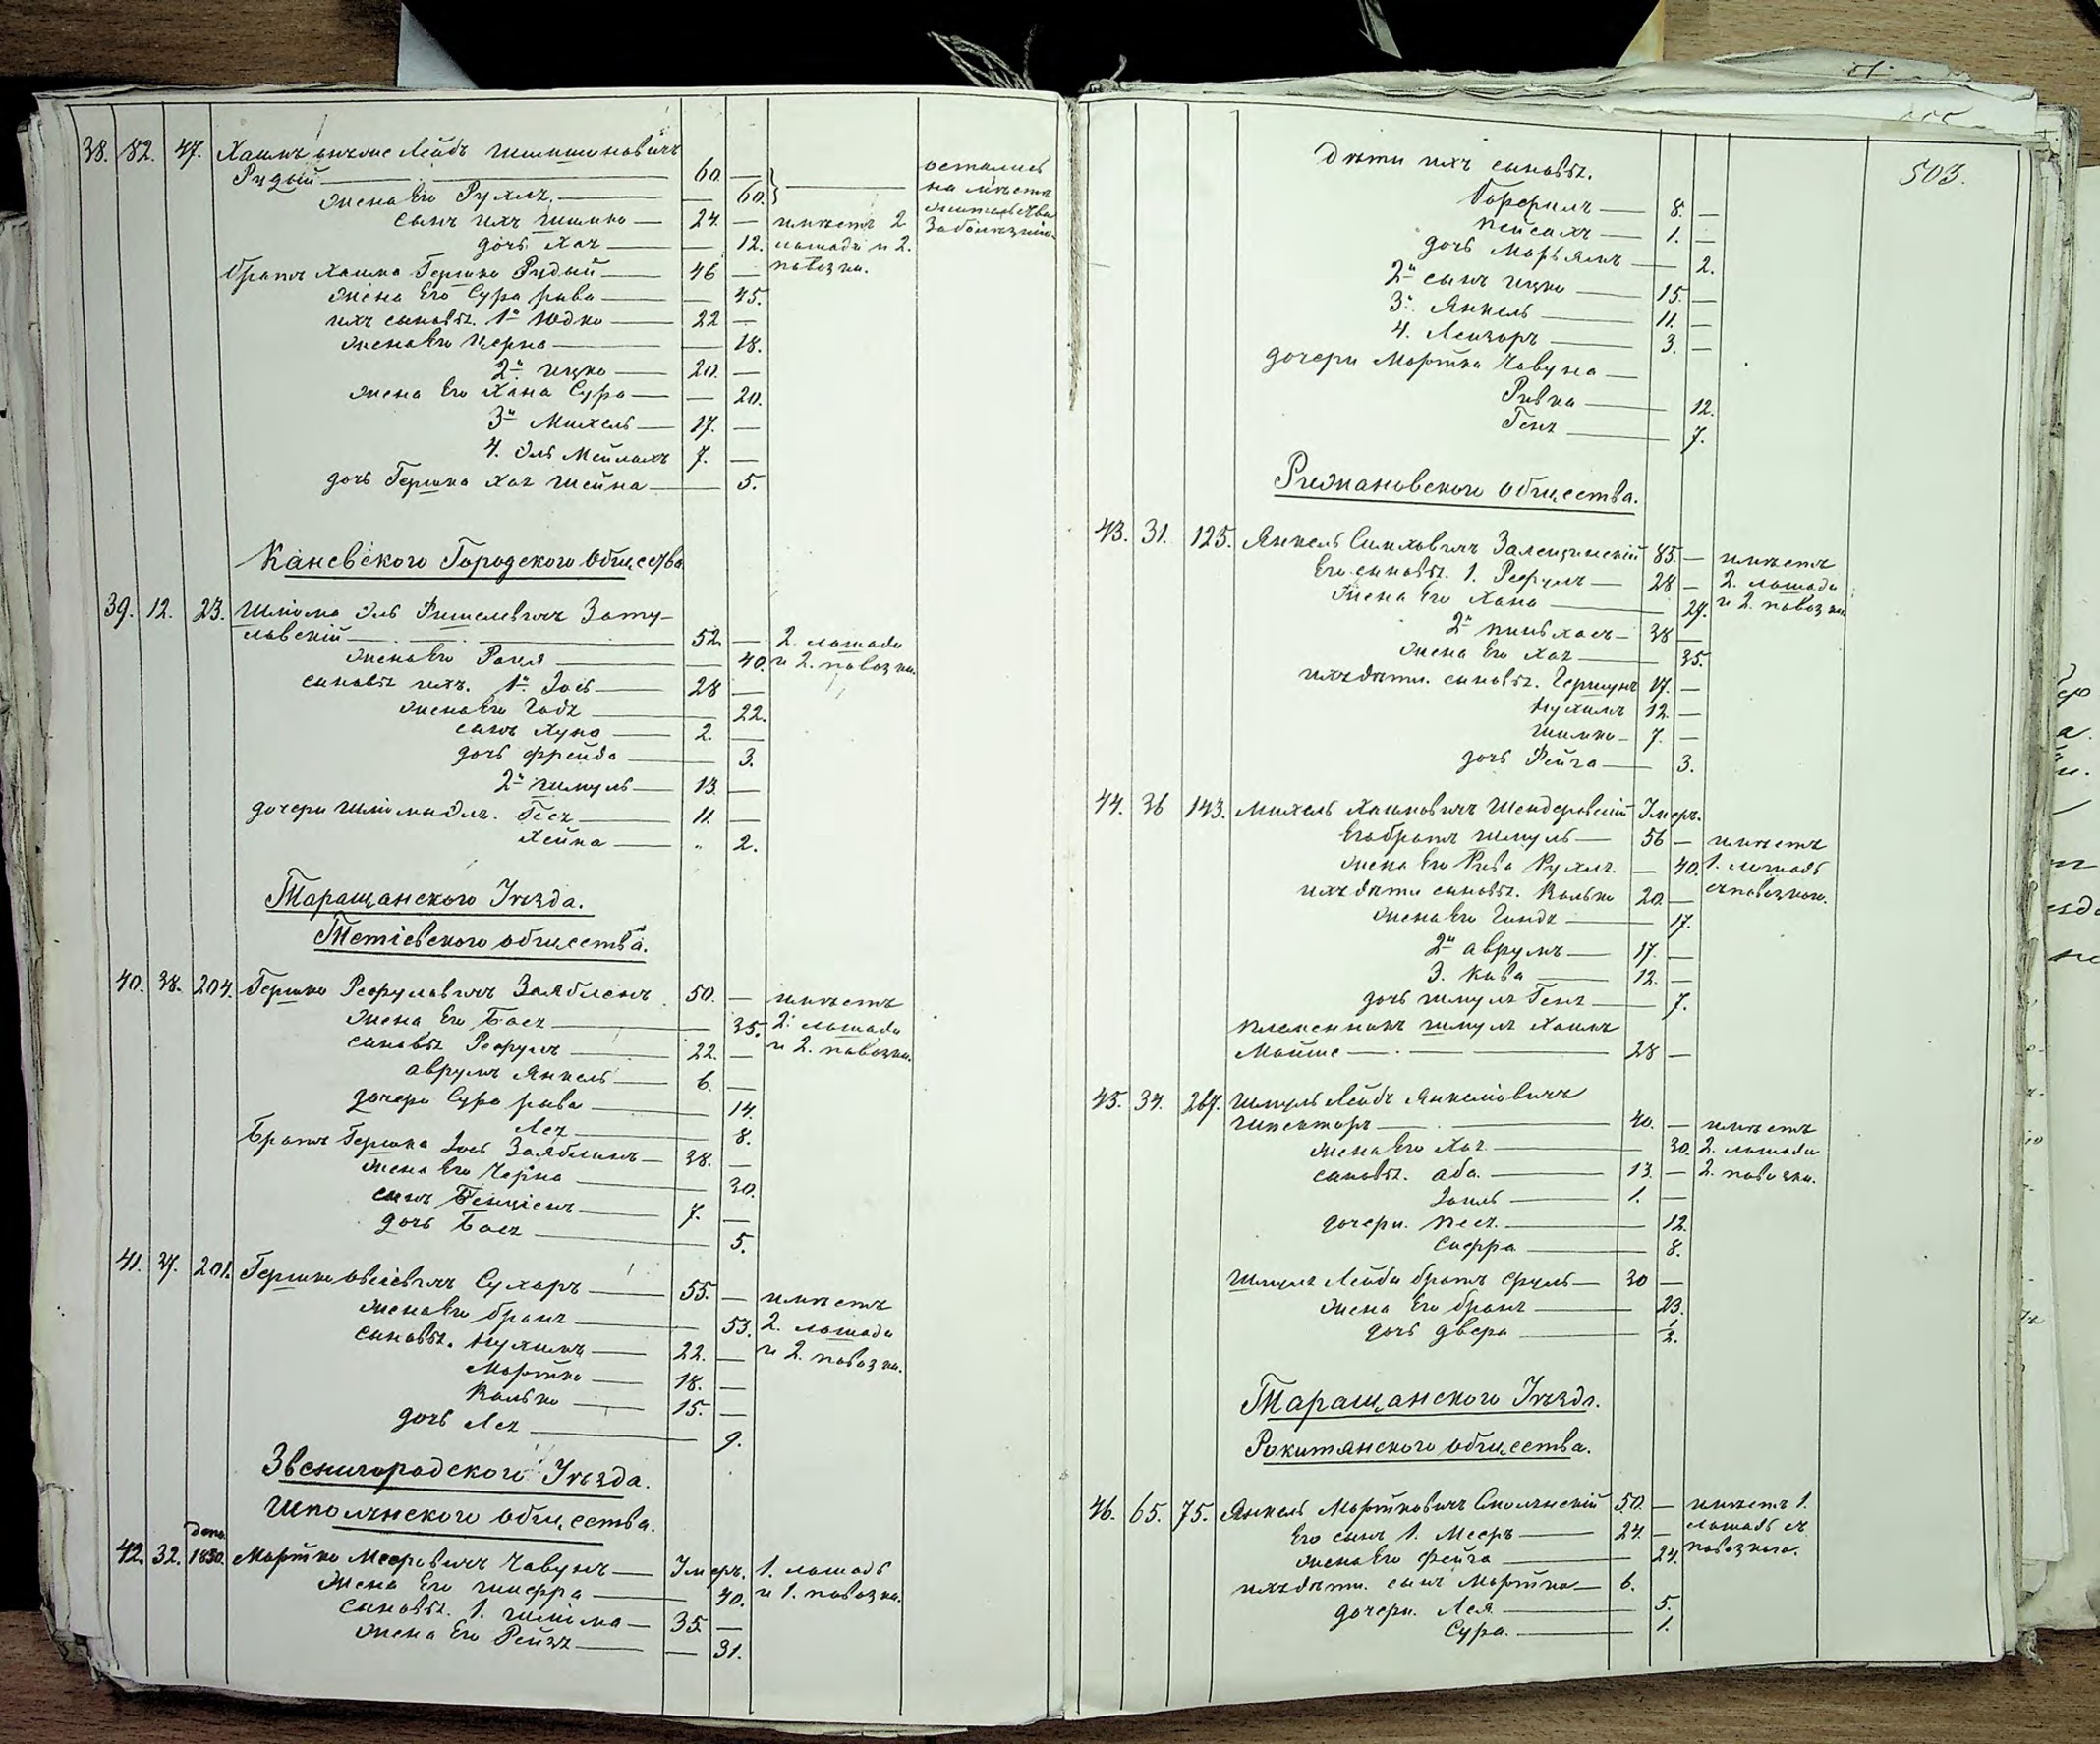 38. 82. 47. Хаимъ онъже Лейбъ Шимшоновичъ
Рудый — 60. — остались
жена Его Рухля — 60. на мѣстѣ
сынъ ихъ Шимко — 24. — имѣетъ 2 жительства
дочь Хая — 12. лошади и 2. за болѣзнію.
братъ Хаима Гершко Рудый — 46 — повозки.
жена Его Сура рива — 45.
ихъ сыновья. 1й Юдко — 22 —
жена Его Черна — 18.
2й Ицко — 20. —
жена Его Хана Сура — 20.
3й Михель — 17. —
4. Эль Мейлахъ 7. —
дочь Гершка Хая Шейна — 5.
Каневского Городского Общества
39. 12. 23. Шліома Эль Фишелевичъ Засу-
лавскій — 52. — 2. лошади
жена Его Рокля — 40. и 2. повозки.
сыновья ихъ. 1й Іось — 28 —
жена Его Година — 22.
сынъ Хуна — 2. —
дочь Фрейда — 3.
2й Шмуль — 13. —
дочери Шліомы Эля. Геся — 11. —
Хейка — „ 2.
Таращанского Уѣзда.
Тетіевского общества.
40. 38. 204. Гершко Рефуловичъ Заяблинъ 50. — имѣетъ
жена Его Бася — 35. 2. лошади
сыновья Рефулъ — 22. — и 2. повозки.
аврумъ Янкель — 6. —
дочери Сура рива — 14.
Лея — 8.
Братъ Гершка Іось Заяблинъ — 38. —
жена Его Черна — 30.
сынъ Бенціенъ — 7. —
дочь Бася — 5.
41. 37. 201. Гершко Овсіевичъ Сухаръ — 55. — имѣетъ
жена Его браня — 53. 2. лошади
сыновья. Нухимъ — 22. — и 2. повозки.
Мортко — 18. —
Волько — 15. —
дочь Лея — 9.
Звенигородского Уѣзда.
Шполянского общества.
42. 32. 1850. Мортко Мееровичъ Чавунъ — Умеръ. 1. лошадь
жена Его Шифра — 40. и 1. повозка.
сыновья. 1. Шліома — 35 —
жена Его Рейзя — 31.
503.
Дѣти ихъ сыновья.
Пейсахъ — 1. —
дочь Марьямъ — 2.
2й сынъ Ицко — 15. —
3й Янкель — 11. —
4. Лейзоръ — 3. —
дочери Мортка Чавуна —
Ривка — 12.
Геня — 7.
Рижановского общества.
43. 31. 125. Янкель Симховичъ Залещинскій 85. — имѣетъ
Его сыновья. 1. Рефулъ — 28 — 2. лошади
жена Его Хана — 27. и 2. повозки
2й Пинхасъ — 38 —
жена Его Хая — 35.
ихъ дѣти. сыновья. Гершунъ 17. —
Нухимъ 12. —
Шимко — 7. —
дочь Фейга — 3.
44. 36 143. Михель Хаимовичъ Шендеровскій Умеръ.
Его братъ Шмуль — 56 — имѣетъ
жена Его Рива Рухля. — 40. 1. лошадь
ихъ дѣти сыновья. Волько 20. — съ повозкою.
жена Его Гиндя — 17.
2й аврумъ — 17. —
3. Кива — 12. —
дочь Шмуля Геня — 7.
племенникъ Шмуля Хаимъ
Мойше — 28 —
45. 34. 267. Шмуль Лейбъ Янкеліовичъ
Шпекторъ — 40. — имѣетъ
жена Его Хая — 30. 2. лошади
сыновья. аба. — 13. — 2. повозки.
Іоиль — 1. —
дочери. Песя. — 12.
Сифра — 8.
Шмуля Лейба братъ Сруль — 30 —
жена Его браня — 23.
дочь двера — 1/2.
Таращанского Уѣзда.
Рокитянского общества.
46. 65. 75. Янкель Мортковичъ Смолянскій 50. — имѣетъ 1.
Его сынъ 1. Мееръ — 24. — лошадь съ
жена Его Фейга — 24. повозкою.
ихъ дѣти. сынъ Мортко — 6.
дочери. Лея — 5.
Сура. — 1.